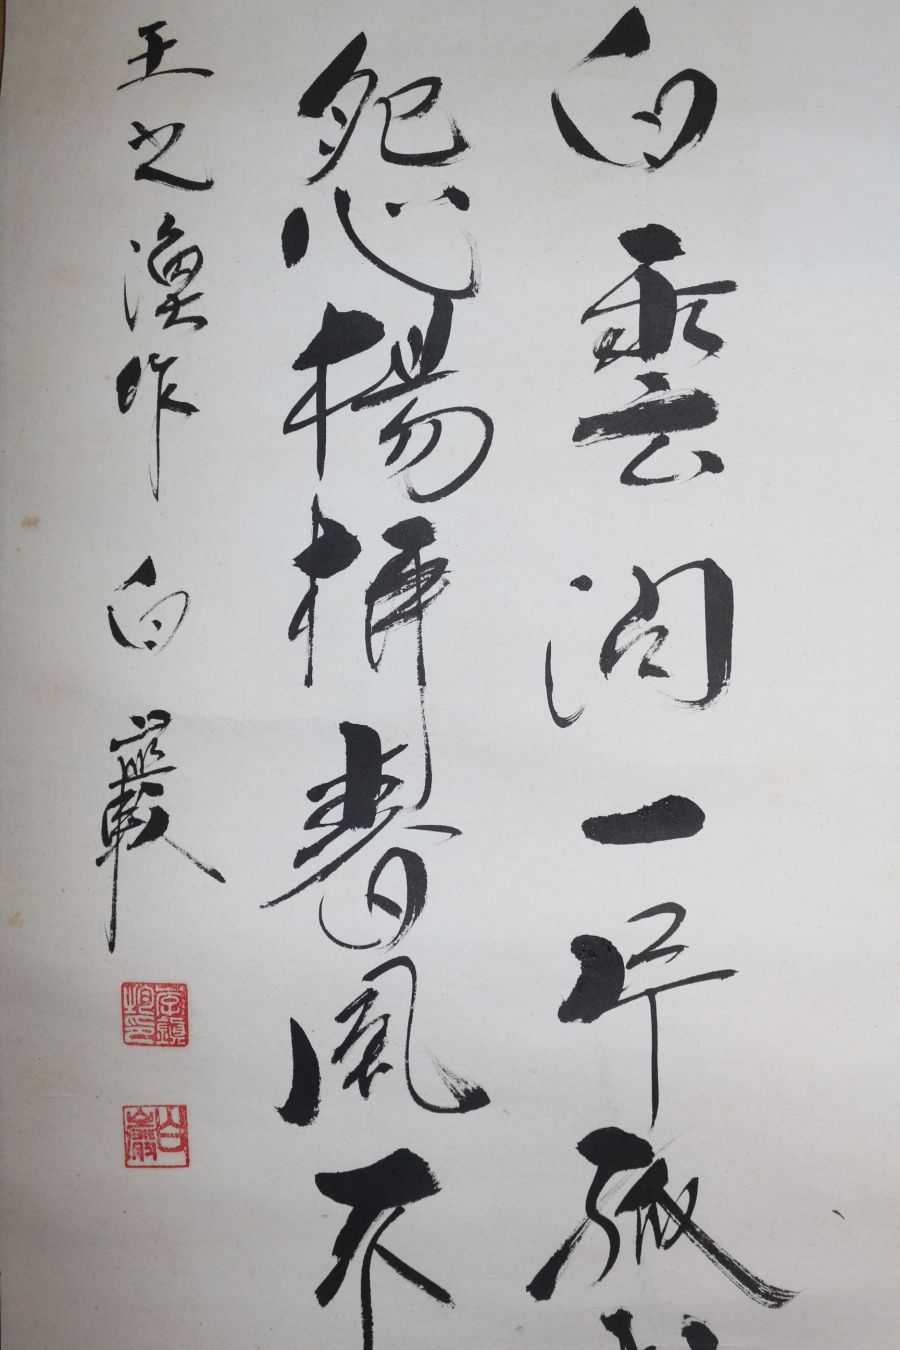 白雲间一片孤
怨楊柳春風不
王之渙作 白巖
白巖